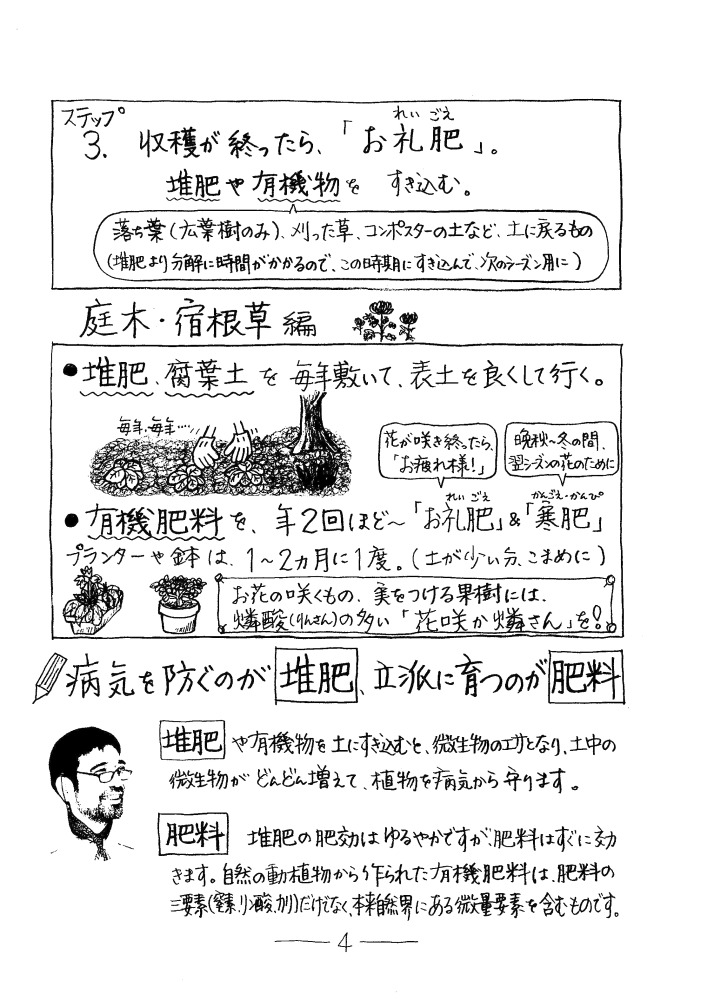 ステップ
3. 収穫が終ったら、「お礼肥」。
れい ごえ
堆肥や有機物を すき込む。
落ち葉(広葉樹のみ)、刈った草、コンポスターの土など、土に戻るもの
(堆肥より分解に時間がかかるので、この時期にすき込んで、次のシーズン用に)
庭木・宿根草編
●堆肥、腐葉土を毎年敷いて、表土を良くして行く。
毎年、毎年‥‥
花が咲き終ったら、
「お疲れ様!」
晩秋〜冬の間、
翌シーズンの花のために
れい ごえ
かんごえ・かんぴ
●有機肥料を、年2回ほど〜「お礼肥」&「寒肥」
プランターや鉢は、1〜2ヵ月に1度。(土が少い分、こまめに)
お花の咲くもの、実をつける果樹には、
燐酸(りんさん)の多い「花咲か燐さん」を!
病気を防ぐのが 堆肥、立派に育つのが 肥料
堆肥 や有機物を土にすき込むと、微生物のエサとなり、土中の
微生物がどんどん増えて、植物を病気から守ります。
肥料 堆肥の肥効はゆるやかですが、肥料はすぐに効
きます。自然の動植物から作られた有機肥料は、肥料の
三要素(窒素、リン酸、カリ)だけでなく、本来自然界にある微量要素を含むものです。
4